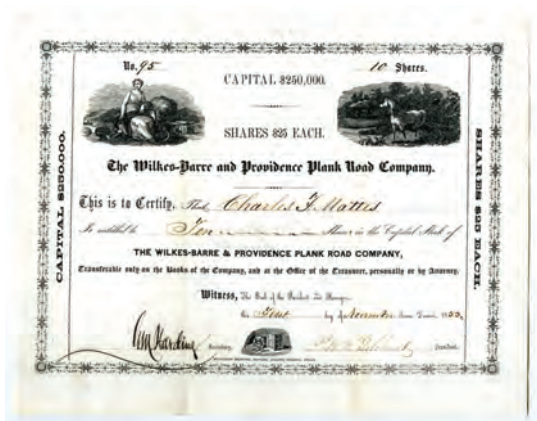 No. 95
10 Shares.
CAPITAL $250,000.
SHARES $25 EACH.
The Wilkes-Barre and Providence Plank Road Company.
This is to Certify, That Charles F. Mattes
Is entitled to Ten Shares in the Capital Stock of
THE WILKES-BARRE & PROVIDENCE PLANK ROAD COMPANY,
Transferable only on the Books of the Company, and at the Office of the Treasurer, personally or by Attorney.
Witness, The Seal of the President and Managers
this First day of November Anno Domini
Secretary.
President.
CAPITAL $250.000.
SHARES $25 EACH.